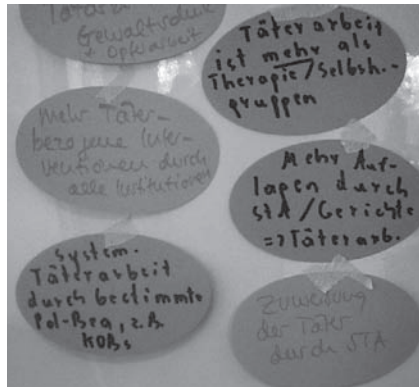 Gewaltschutz
+ Opferarbeit
Mehr Täter-
bezogene Inter-
ventionen durch
alle Institutionen
System.
Täterarbeit
durch bestimmte
Pol-Bea, z.B.
KOBs
Täterarbeit
ist mehr als
Therapie/Selbsth.-
gruppen
Mehr Auf-
lagen durch
StA/Gerichte
=> Täterarb.
Zuweisung
der Täter
durch STA